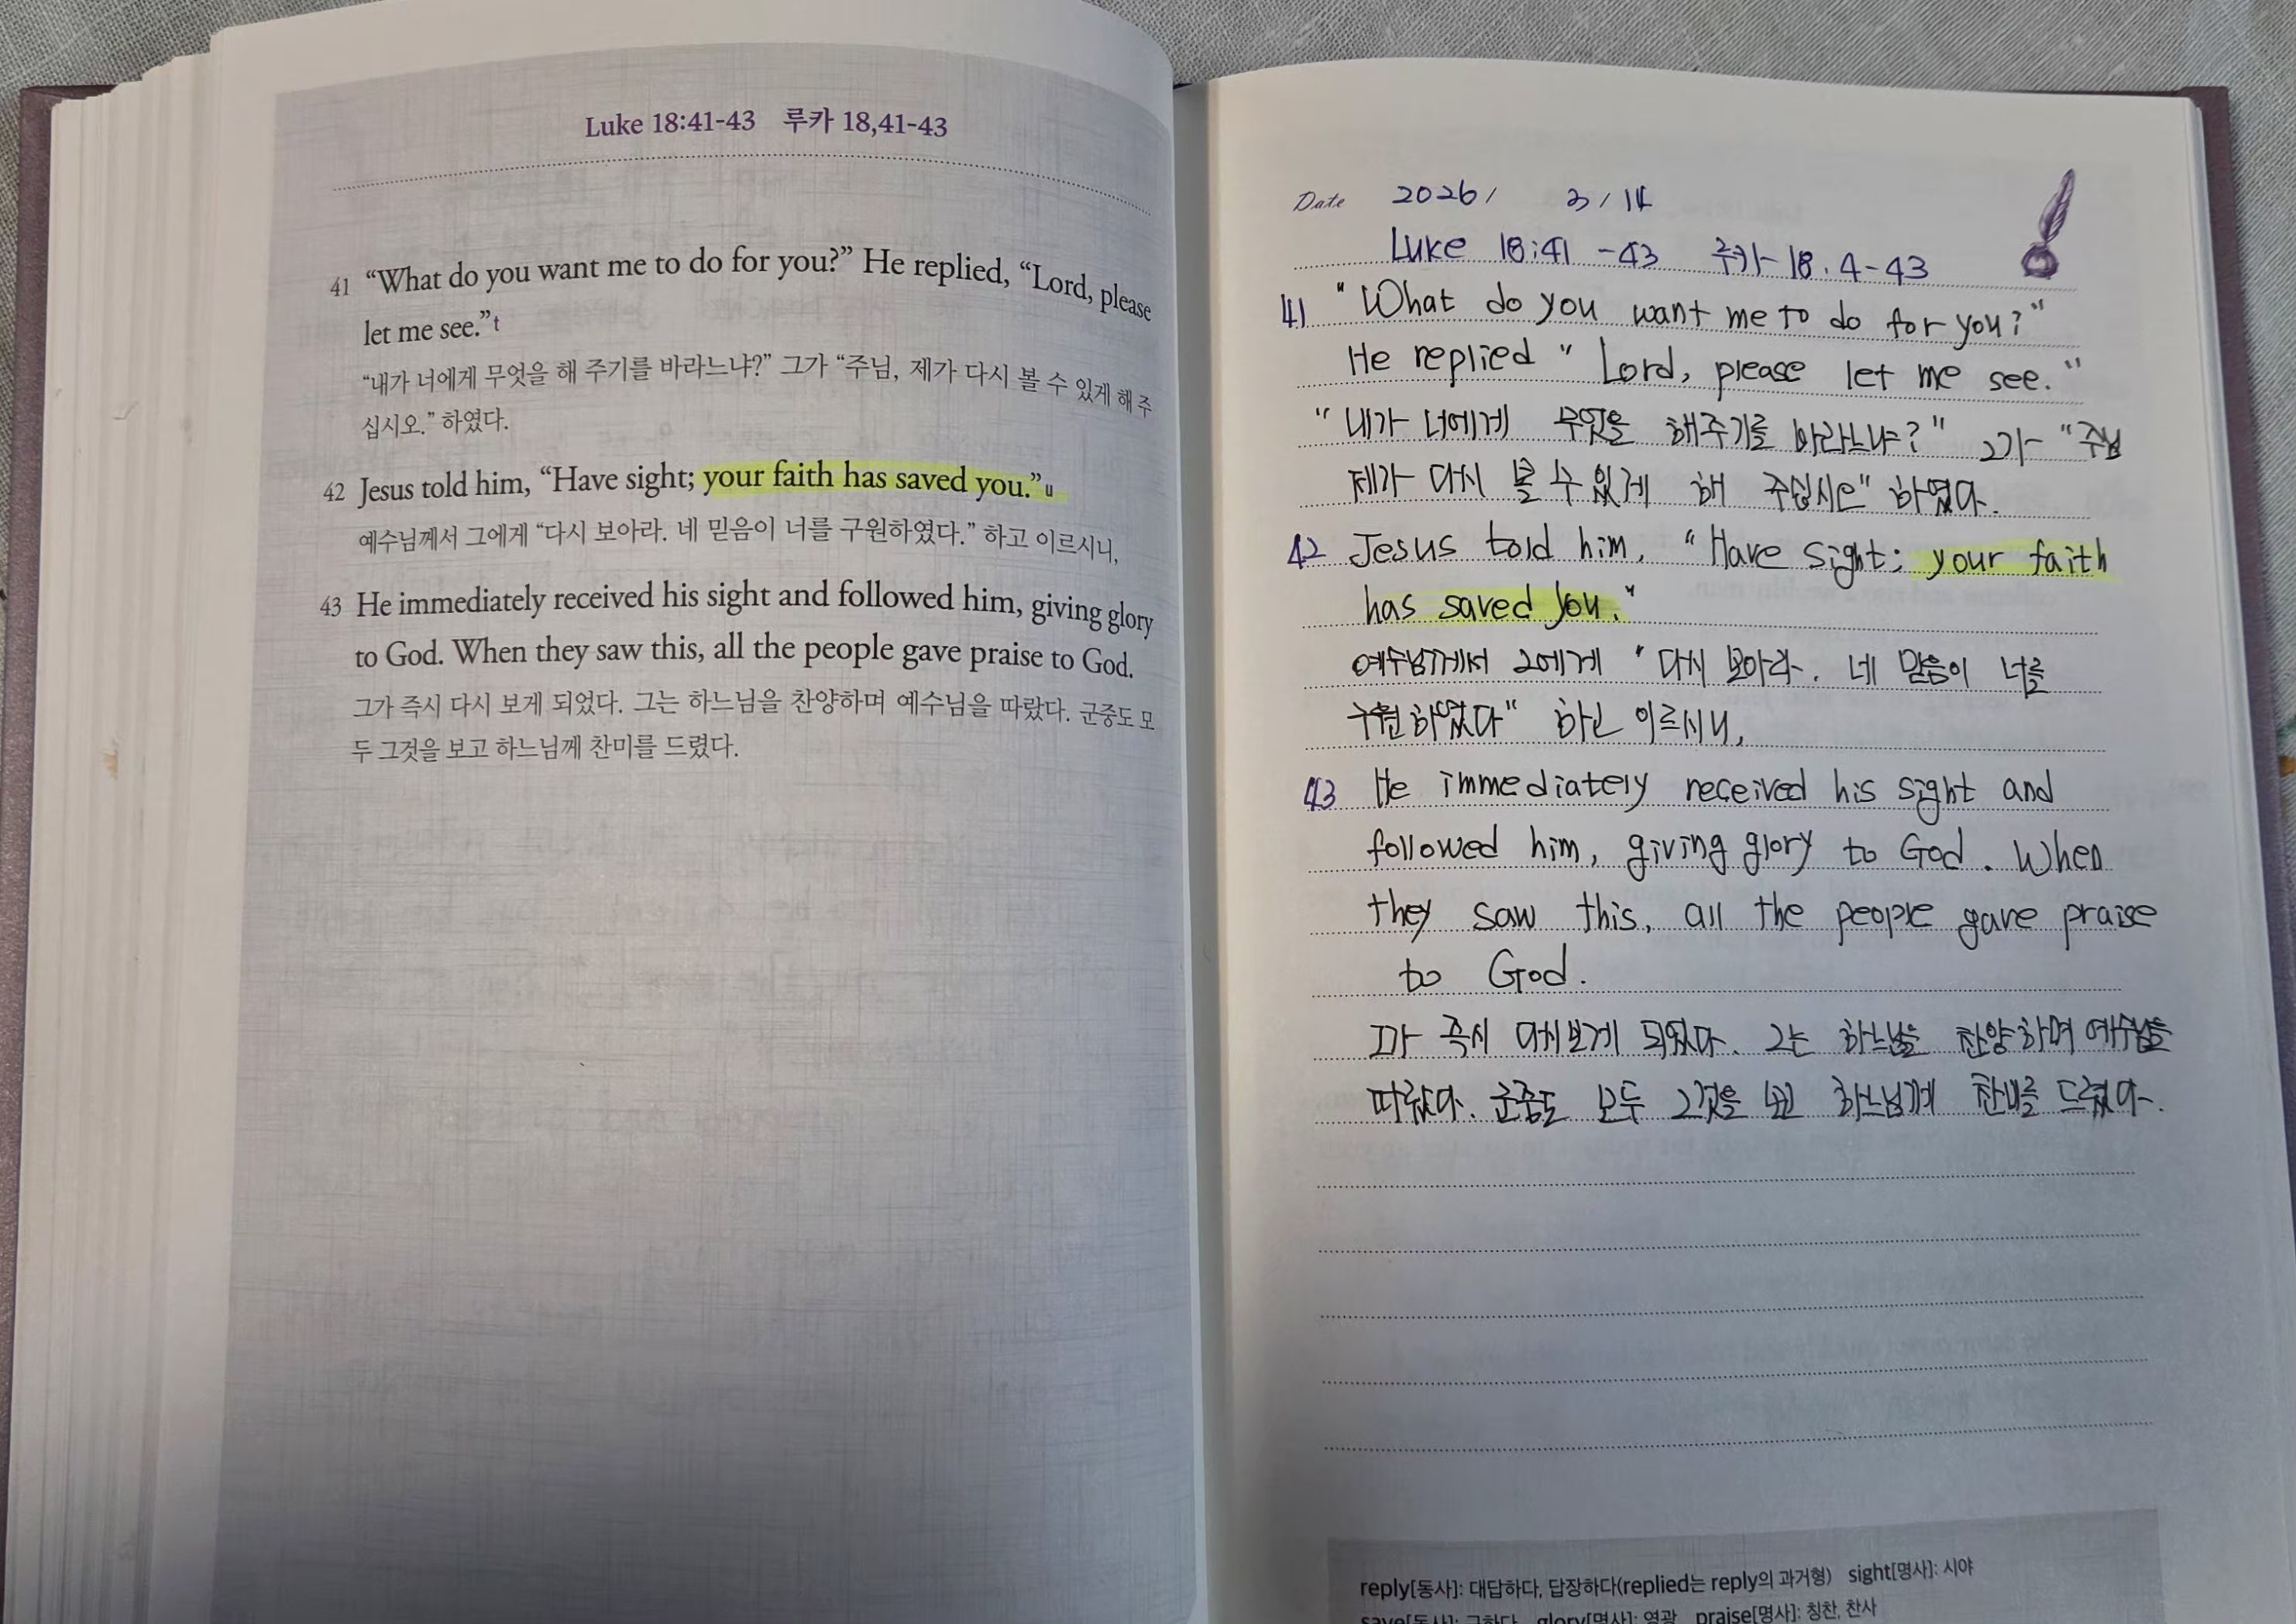 Luke 18:41-43 루카 18,41-43
41 “What do you want me to do for you?” He replied, “Lord, please
let me see.”t
“내가 너에게 무엇을 해 주기를 바라느냐?” 그가 “주님, 제가 다시 볼 수 있게 해 주
십시오.” 하였다.
42 Jesus told him, “Have sight; your faith has saved you.”u
예수님께서 그에게 “다시 보아라. 네 믿음이 너를 구원하였다.” 하고 이르시니,
43 He immediately received his sight and followed him, giving glory
to God. When they saw this, all the people gave praise to God.
그가 즉시 다시 보게 되었다. 그는 하느님을 찬양하며 예수님을 따랐다. 군중도 모
두 그것을 보고 하느님께 찬미를 드렸다.
Date 2026/ 3/14
Luke 18:41 -43 루카 18.4-43
41 "What do you want me to do for you?"
He replied " Lord, please let me see."
"내가 너에게 무엇을 해주기를 바라느냐?" 그가 "주님
제가 다시 볼 수 있게 해 주십시오" 하였다.
42 Jesus told him, "Have sight; your faith
has saved you."
예수님께서 그에게 "다시 보아라. 네 믿음이 너를
구원하였다" 하고 이르시니,
43 He immediately received his sight and
followed him, giving glory to God. When
they saw this, all the people gave praise
to God.
그가 즉시 다시보게 되었다. 그는 하느님을 찬양하며 예수님을
따랐다. 군중도 모두 그것을 보고 하느님께 찬미를 드렸다.
reply[동사]: 대답하다, 답장하다(replied는 reply의 과거형) sight[명사]: 시야
save[동사]: 구하다 glory[명사]: 영광 praise[명사]: 칭찬, 찬사